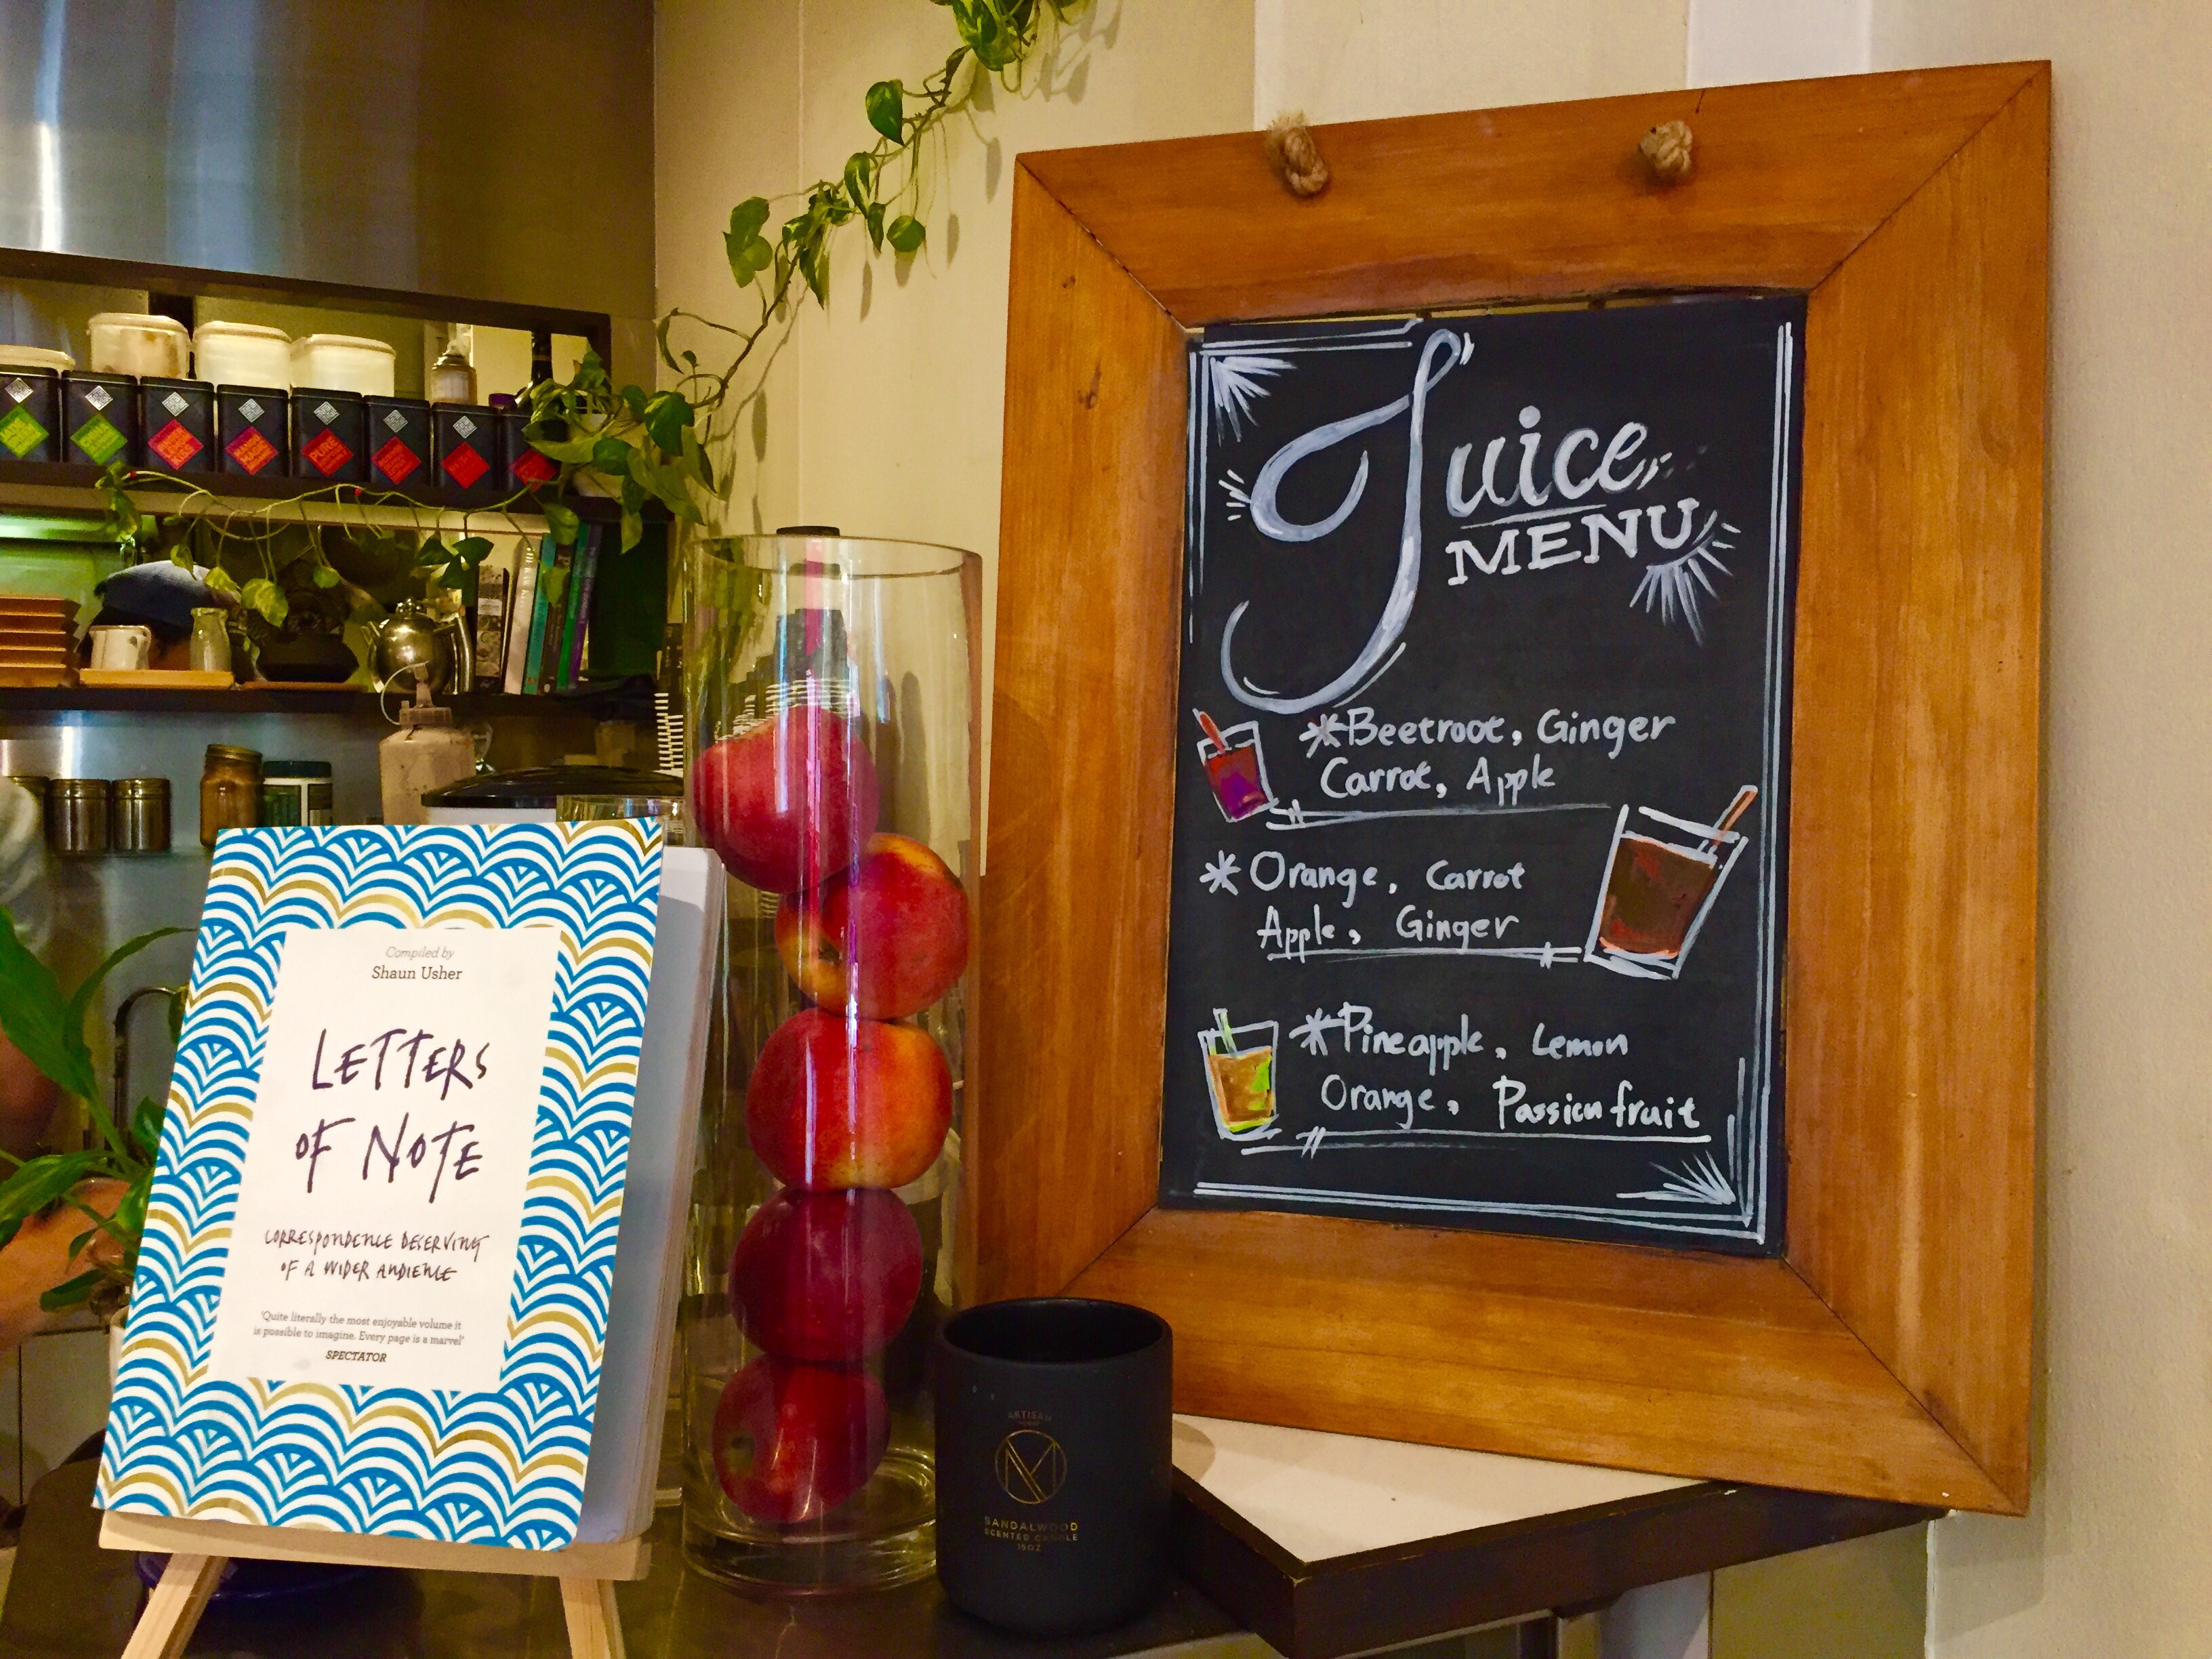 Compiled by
Shaun Usher
LETTERS
OF NOTE
CORRESPONDENCE DESERVING
OF A WIDER AUDIENCE
'Quite literally the most enjoyable volume it
is possible to imagine. Every page is a marvel'
SPECTATOR
ARTISAN
M
SANDALWOOD
SCENTED CANDLE
15OZ
Juice
MENU
*Beetroot, Ginger
Carrot, Apple
* Orange, Carrot
Apple, Ginger
*Pineapple, Lemon
Orange, Passionfruit
PURE